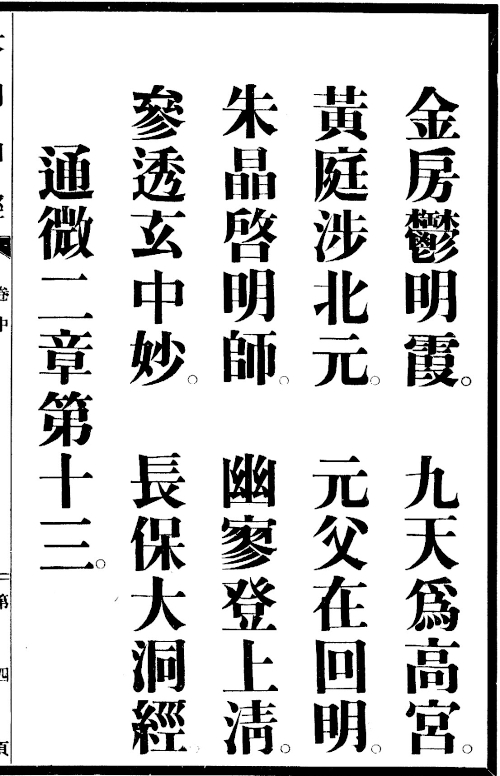 金房鬱明霞。　九天爲高宮。
黃庭涉北元。　元父在回明。
朱晶啓明師。　幽寥登上淸。
參透玄中妙。　長保大洞經
通微二章第十三。
卷中
第四頁